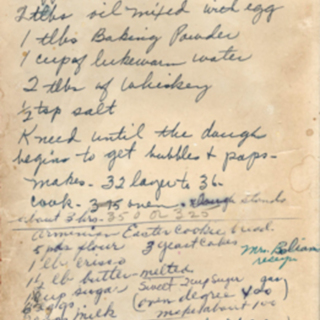 2 tlbs oil mixed with egg
1 tlbs Baking Powder
1 cup of lukewarm water
2 tlbs of Whiskey
1/2 tsp salt
Knead until the dough
begins to get bubbles & pops-
makes - 32 large to 36-
cook - 375 oven - dough stands
about 3 hrs - 350 or 325
Armenian Easter Cookie bread.
5 lbs flour 3 yeast cakes
1 lb crisco
1 1/2 lb butter - melted
cup sugar Sweet
eggs. (oven degree 400
milk makes about 100
Mrs.
recipe